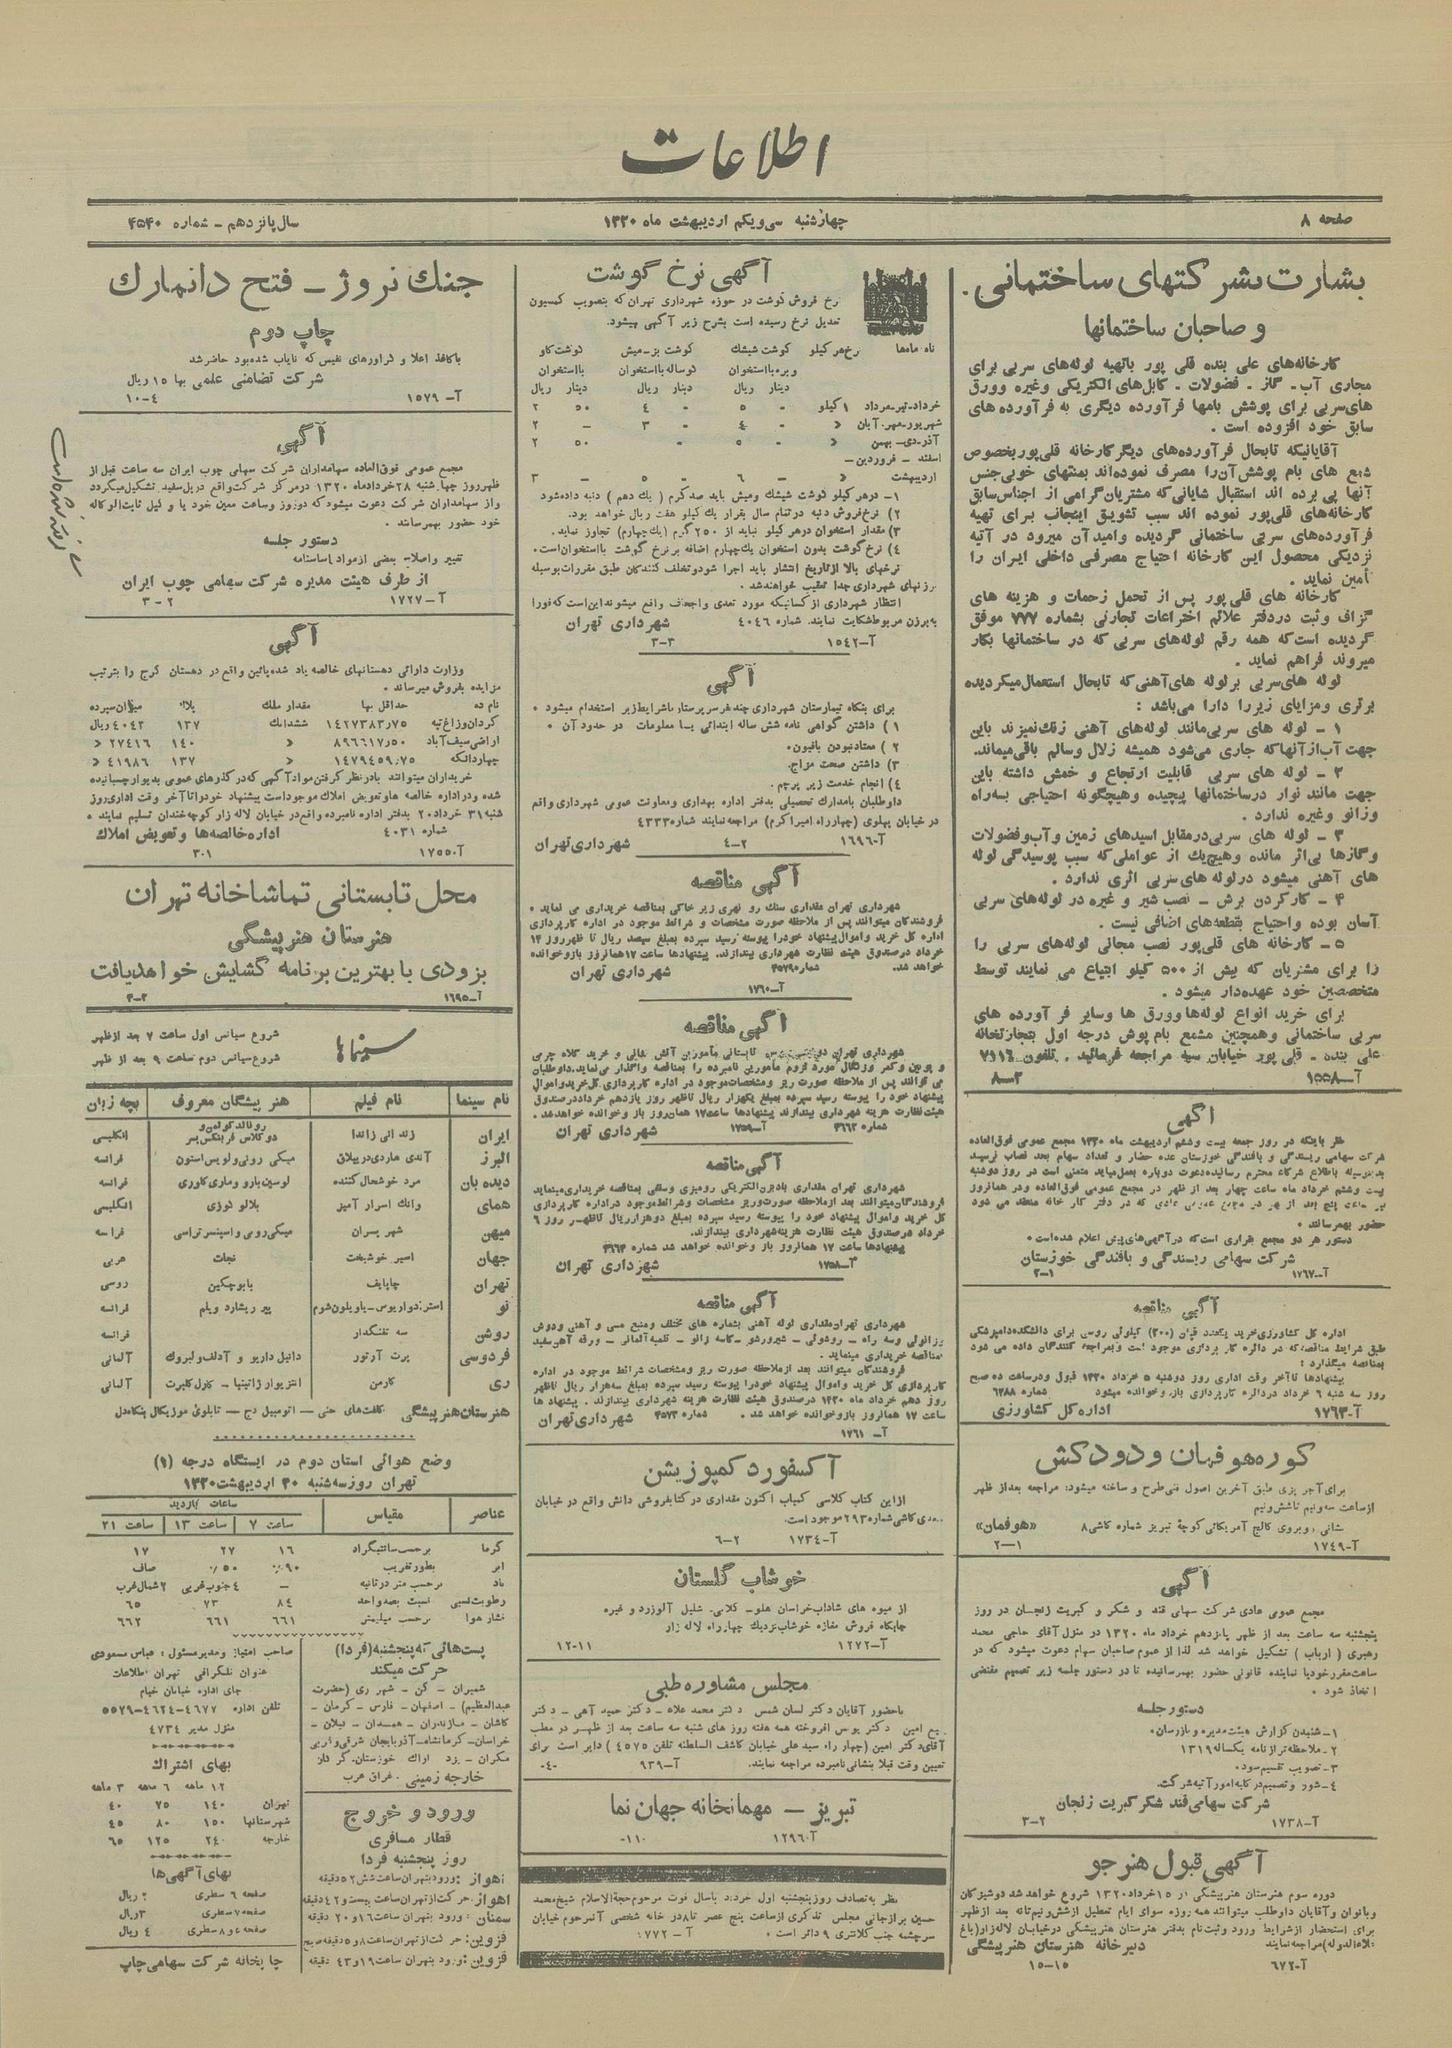 اطلاعات
صفحه ۸
چهارشنبه سی‌ویکم اردیبهشت ماه ۱۳۲۰
سال پانزدهم - شماره ۴۵۴۰
بشارت بشرکتهای ساختمانی
و صاحبان ساختمانها
کارخانه‌های علی بنده قلی پور باتهیه لوله‌های سربی برای
مجاری آب - گاز - فضولات - کابل‌های الکتریکی وغیره وورق
های‌سربی برای پوشش بامها فرآورده دیگری به فرآورده های
سابق خود افزوده است .
آقایانیکه تابحال فرآورده‌های دیگرکارخانه قلی‌پوربخصوص
های بام پوشش‌آن‌را مصرف نموده‌اند بمنتهای خوبی‌جنس
آنها پی برده اند استقبال شایانی‌که مشتریان‌گرامی از اجناس‌سابق
کارخانه‌های قلی‌پور نموده اند سبب تشویق اینجانب برای تهیه
فرآورده‌های سربی ساختمانی گردیده وامیدآن میرود در آتیه
نزدیکی محصول این کارخانه احتیاج مصرفی داخلی ایران را
تأمین نماید .
کارخانه های قلی‌پور پس از تحمل زحمات و هزینه های
گزاف وثبت دردفتر علائم اختراعات تجارتی بشماره ۷۷۷ موفق
گردیده است‌که همه رقم لوله‌های سربی که در ساختمانها بکار
میروند فراهم نماید .
لوله های‌سربی برلوله های‌آهنی‌که تابحال استعمال‌میکردیده
برتری ومزایای زیررا دارا می‌باشد :
۱ - لوله های سربی‌مانند لوله‌های آهنی زنك‌نمیزند باین
جهت آب‌ازآنهاکه جاری می‌شود همیشه زلال وسالم باقی‌میماند.
۲ - لوله های سربی قابلیت ارتجاع و خمش داشته باین
جهت مانند نوار درساختمانها پیچیده وهیچگونه احتیاجی بسه‌راه
وزانو وغیره ندارد .
۳ - لوله های سربی‌درمقابل اسیدهای زمین وآب‌وفضولات
وگازها بی‌اثر مانده وهیچ‌یك از عواملی‌که سبب پوسیدگی لوله
های آهنی میشود درلوله های‌سربی اثری ندارد .
۴ - کارکردن برش - نصب شیر و غیره در لوله‌های سربی
آسان بوده واحتیاج بقطعه‌های اضافی نیست .
۵ - کارخانه های قلی‌پور نصب مجانی لوله‌های سربی را
را برای مشتریان که بیش از ۵۰۰ کیلو ابتیاع می نمایند توسط
متخصصین خود عهده‌دار میشود .
برای خرید انواع لوله‌هاوورق ها وسایر فرآورده های
سربی ساختمانی وهمچنین مشمع بام‌پوش درجه اول بتجارتخانه
علی بنده - قلی پور خیابان سپه مراجعه فرمائید . تلفون ۷۱۱۶
آ-۱۵۵۸ ۳-۸
آگهی
نظر باینکه در روز جمعه بیست وششم اردیبهشت ماه ۱۳۲۰ مجمع عمومی فوق‌العاده
شرکت سهامی ریسندگی و بافندگی خوزستان عده حضار و تعداد سهام بعد نصاب نرسید
بدینوسیله باطلاع شرکاء محترم رسانیده دعوت دوباره بعمل‌میاید متمنی است در روز دوشنبه
بیست وششم خرداد ماه ساعت چهار بعد از ظهر در مجمع عمومی فوق‌العاده ودر همانروز
که در دفتر کار خانه منعقد می شود
حضور بهمرسانند .
دستور هر دو مجمع بقراری است‌که درآگهی‌های‌پیش اعلام شده است .
شرکت سهامی ریسندگی و بافندگی خوزستان
آ-۱۷۶۷ ۱-۲
آگهی مناقصه
اداره کل کشاورزی‌خرید یکعدد قپان (۲۰۰) کیلوئی روسی برای دانشکده‌دامپزشکی
طبق شرایط مناقصه‌که در دائره کار پردازی موجود است وبمراجعه کنندگان داده می شود
بمناقصه میگذارد :
پیشنهادها تاآخر وقت اداری روز دوشنبه ۵ خرداد ۱۳۲۰ قبول ودرساعت ده صبح
روز سه شنبه ۶ خرداد دردائره کارپردازی باز وخوانده میشود شماره ۶۲۸۸
آ-۱۷۶۳ اداره کل کشاورزی
کوره‌هوفمان ودودکش
برای‌آجر پزی طبق آخرین اصول فنی‌طرح و ساخته میشود: مراجعه بعداز ظهر
ازساعت سه‌ونیم تاشش‌ونیم
نشانی روبروی کالج آمریکائی کوچهٔ تبریز شماره کاشی۸ «هوفمان»
آ-۱۷۴۹ ۱-۲
آگهی
مجمع عمومی عادی شرکت سهامی قند و شکر و کبریت زنجان در روز
پنجشنبه سه ساعت بعد از ظهر پانزدهم خرداد ماه ۱۳۲۰ در منزل آقای حاجی محمد
رهبری ( ارباب ) تشکیل خواهد شد لذا از عموم صاحبان سهام دعوت میشود که در
ساعت‌مقررخودیا نماینده قانونی حضور بهمرسانیده تا در دستور جلسه زیر تصمیم مقتضی
اتخاذ شود .
دستورجلسه
۱-شنیدن گزارش هیئت‌مدیره وبازرسان .
۲-ملاحظه‌ترازنامه یکساله۱۳۱۹
۳-تصویب تقسیم‌سود .
۴-شور وتصمیم‌درکلیه امورآتیه شرکت.
شرکت سهامی‌قند شکرکبریت زنجان
آ-۱۷۳۸ ۲-۳
آگهی قبول هنرجو
دوره سوم هنرستان هنرپیشگی از ۱۵خرداد۱۳۲۰ شروع خواهد شد دوشیزگان
وبانوان وآقایان داوطلب میتوانند همه روزه سوای ایام تعطیل ازشش‌ونیم‌تانه بعدازظهر
برای استحضار ازشرایط ورود وثبت‌نام بدفتر هنرستان هنرپیشگی درخیابان لاله‌زار(باغ
علاءالدوله)مراجعه‌نمایند دبیرخانه هنرستان هنرپیشگی
آ-۶۷۲ ۱۵-۱۵
آگهی نرخ گوشت
نرخ فروش گوشت در حوزه شهرداری تهران‌که بتصویب کمسیون
تعدیل نرخ رسیده است بشرح زیر آگهی میشود.
نام ماه‌ها نرخ‌هرکیلو گوشت شیشك گوشت بز-میش گوشت‌گاو
وبره‌بااستخوان گوساله‌بااستخوان بااستخوان
دینار ریال دینار ریال دینار ریال
خرداد-تیر-مرداد ۱کیلو - ۵ - ۴ ۵۰ ۲
شهریور-مهر-آبان « - ۴ - ۳ - ۲
آذر-دی-بهمن « - ۵ - ۵۰ ۲
اسفند - فروردین -
اردیبهشت « - ۶ - ۵ - ۳
۱- درهرکیلو گوشت شیشك ومیش باید صدگرم ( یك دهم ) دنبه داده‌شود
۲) نرخ‌فروش دنبه درتمام سال بقرار یك کیلو هفت ریال خواهد بود.
۳) مقدار استخوان درهر کیلو نباید از ۲۵۰گرم (یك‌چهارم) تجاوز نماید.
۴) نرخ گوشت بدون استخوان یك‌چهارم اضافه برنرخ گوشت بااستخوان‌است.
نرخهای بالا ازتاریخ انتشار باید اجرا شودوتخلف کنندگان طبق مقررات‌بوسیله
برزنهای شهرداری جدا تعقیب خواهندشد .
انتظار شهرداری ازکسانیکه مورد تعدی واجحاف واقع میشوند این‌است‌که‌فورا
به‌برزن مربوط‌شکایت نمایند. شماره ۴۰۴۶ شهرداری تهران
آ-۱۵۴۲ ۳-۳
آگهی
برای بنگاه تیمارستان شهرداری چندنفرسرپرستارباشرایط‌زیر استخدام میشود .
۱ ) داشتن گواهی نامه شش ساله ابتدائی یا معلومات در حدود آن .
۲ ) معتادنبودن بافیون.
۳) داشتن صحت مزاج.
۴) انجام خدمت زیر پرچم .
داوطلبان بامدارك تحصیلی بدفتر اداره بهداری ومعاونت عمومی شهرداری واقع
در خیابان پهلوی (چهارراه امیراکرم) مراجعه‌نمایند شماره ۴۳۳۳
آ-۱۶۹۶ ۲-۴ شهرداری تهران
آگهی مناقصه
شهرداری تهران مقداری سنك رو نهری زیر خاکی بمناقصه خریداری می نماید .
فروشندگان میتوانند پس از ملاحظه صورت مشخصات و شرائط موجود در اداره کارپردازی
اداره کل خرید واموال‌پیشنهاد خودرا پیوسته رسید سپرده بمبلغ سیصد ریال تا ظهرروز ۱۴
خرداد درصندوق هیئت نظارت شهرداری بیندازند. پیشنهادها ساعت ۱۷همانروز بازوخوانده
خواهد شد. شماره ۴۵۷۹ شهرداری تهران
آ-۱۷۶۰
آگهی مناقصه
شهرداری تهران تابستانی مأمورین آتش نشانی و خرید کلاه چرمی
می توانند پس از ملاحظه صورت ریز ومشخصات‌موجود در اداره کارپردازی‌کل‌خریدواموال
پیشنهاد خود را پیوسته رسید سپرده بمبلغ یکهزار ریال تاظهر روز یازدهم خرداددرصندوق
هیئت‌نظارت هزینه شهرداری بیندازند پیشنهادها ساعت۱۷ همان‌روز باز وخوانده خواهدشد .
آ-۱۷۵۹ شهرداری تهران
آگهی مناقصه
شهرداری تهران مقداری بادبزن‌الکتریکی رومیزی وسقفی بمناقصه خریداری‌مینماید
فروشندگان‌میتوانند بعد ازملاحظه صورت‌وریز مشخصات وشرائط‌موجود دراداره کارپردازی
کل خرید واموال پیشنهاد خود را پیوسته رسید سپرده بمبلغ دوهزارریال تاظهر روز ۶
خرداد درصندوق هیئت نظارت هزینه شهرداری بیندازند.
پیشنهادها ساعت ۱۷ همانروز باز وخوانده خواهد شد
آ-۱۷۵۸ شهرداری تهران
آگهی مناقصه
شهرداری تهران‌مقداری لوله آهنی بشماره های مختلف ومنبع مسی و آهنی ودوش
وزانوئی وسه راه - روشوئی - شیرورشو - کاسه زانو - تلمبه آلمانی - ورقه آهن‌سفید
بمناقصه خریداری مینماید .
فروشندگان میتوانند بعد ازملاحظه صورت ریز ومشخصات شرائط موجود در اداره
کارپردازی کل خرید واموال پیشنهاد خودرا پیوسته رسید سپرده بمبلغ سه‌هزار ریال تاظهر
روز دهم خرداد ماه ۱۳۲۰ درصندوق هیئت نظارت هزینه شهرداری بیندازند . پیشنهاد ها
ساعت ۱۷ همانروز بازوخوانده خواهد شد . شماره ۴۵۷۳ شهرداری تهران
آ- ۱۷۶۱
آکسفورد کمپوزیشن
ازاین کتاب کلاسی کمیاب اکنون مقداری در کتابفروشی دانش واقع در خیابان
سعدی کاشی شماره ۲۹۳ موجود است.
آ-۱۷۳۴ ۲-۶
خوشاب گلستان
از میوه های شاداب‌خراسان هلو- گلابی. شلیل آلوزرد و غیره
جایگاه فروش مغازه خوشاب‌نزدیك چهارراه لاله‌زار
آ-۱۲۷۲ ۱۱-۱۲
مجلس مشاوره طبی
باحضور آقایان دکتر لسان شمس دکتر محمد علاء - دکتر حمید آهی - دکتر
امین دکتر یونس افروخته همه هفته روز های شنبه سه ساعت بعد از ظهر در مطب
آقای دکتر امین (چهار راه سید علی خیابان کاشف السلطنه تلفن ۴۵۷۵) دایر است برای
تعیین وقت قبلا بنشانی نامبرده مراجعه نمایند. آ-۹۳۹
تبریز - مهمانخانه جهان نما
آ-۱۲۹۶ ۱۱۰-
نظر به‌تصادف روزپنجشنبه اول خرداد باسال فوت مرحوم‌حجةالاسلام شیخ‌محمد
حسین برازجانی مجلس تذکری ازساعت پنج عصر تا۸درخانه شخصی آنمرحوم خیابان
سرچشمه جنب کلانتری ۹ دائر است . آ-۱۷۷۲
جنك نروژ - فتح دانمارك
چاپ دوم
باکاغذ اعلا و گراورهای نفیس که نایاب شده‌بود حاضر شد
شرکت تضامنی علمی بها ۱۵ ریال
آ- ۱۵۷۹ ۴-۱۰
آگهی
مجمع عمومی فوق‌العاده سهامداران شرکت سهامی چوب ایران سه ساعت قبل از
ظهرروز چهارشنبه ۲۸خردادماه ۱۳۲۰ درمرکز شرکت‌واقع درپل‌سفید تشکیل‌میگردد
واز سهامداران شرکت دعوت میشود که درروز وساعت معین خود یا وکیل ثابت‌الوکاله
خود حضور بهمرسانند .
دستور جلسه
تغییر واصلاح بعضی ازمواد اساسنامه
از طرف هیئت مدیره شرکت سهامی چوب ایران
آ-۱۷۲۷ ۲-۳
آگهی
وزارت دارائی دهستانهای خالصه یاد شده‌پائین واقع در دهستان کرج را بترتیب
مزایده بفروش میرساند .
نام ده حداقل بها مقدار ملك پلاك میزان‌سپرده
کردان‌وزاغ‌تپه ۱۴۲۷۳۸۳٫۷۵ ششدانك ۱۳۷ ۴۰۴۲ریال
اراضی‌سیف‌آباد ۸۹۶۶۱۷٫۵۰ « ۱۴۰ ۲۷۴۱۶ «
چهاردانگه ۱۴۷۹۴۵۹٫۷۵ « ۱۳۷ ۴۱۹۸۶ «
خریداران میتوانند بادرنظر گرفتن موادآگهی که درگذرهای عمومی بدیوارچسبانیده
شده ودراداره خالصه هاوتعویض املاك موجوداست پیشنهاد خودراتاآخر وقت اداری‌روز
شنبه ۳۱ خرداد۲۰ بدفتر اداره نامبرده واقع‌درخیابان لاله زارکوچه‌خندان تسلیم نمایند .
شماره ۴۰۳۱ اداره‌خالصه‌ها وتعویض املاك
آ-۱۷۵۵ ۱-۳
محل تابستانی تماشاخانه تهران
هنرستان هنرپیشگی
بزودی با بهترین برنامه گشایش خواهدیافت
آ-۱۶۹۵ ۲-۳
سینماها
شروع سیانس اول ساعت ۷ بعد ازظهر
شروع‌سیانس دوم ساعت ۹ بعد از ظهر
نام سینما نام فیلم هنرپیشگان معروف بچه زبان
ایران زندانی زاندا رونالدکولمن‌و دوکلاس فربنکس‌پسر انگلیسی
البرز آندی هاردی‌درییلاق میکی رونی‌ولویس‌استون فرانسه
دیده‌بان مرد خوشحال‌کننده لوسین‌بارو وماری‌گلوری فرانسه
همای وانك اسرار آمیز بلالو گوزی انگلیسی
میهن شهر پسران میکی‌رونی واسپنسرتراسی فرانسه
جهان اسیر خوشبخت نجات عربی
تهران چاپایف بابوچکین روسی
نو استرادیواریوس-باویلون‌شوم پیر ریشارد ویلم فرانسه
روشن سه تفنگدار فرانسه
فردوسی پرت آرتور دانیل داریو و آدلف‌ولبروك آلمانی
ری کارمن امپریوارژانتینا - کارل‌کلبرت آلمانی
هنرستان‌هنرپیشگی
وضع هوائی استان دوم در ایستگاه درجه (۱)
تهران روزسه‌شنبه ۳۰ اردیبهشت۱۳۲۰
عناصر مقیاس ساعات بازدید
ساعت ۷ ساعت ۱۳ ساعت ۲۱
گرما برحسب‌سانتیگراد ۱۶ ۲۷ ۱۷
ابر بطورتقریب ۹۰٪ ۵۰٪ صاف
باد برحسب متر درثانیه - ۴جنوب‌غربی ۲شمال‌غرب
رطوبت‌نسبی نسبت بصدواحد ۸۴ ۷۳ ۶۵
فشارهوا برحسب میلیمتر ۶۶۱ ۶۶۱ ۶۶۲
پست‌هائی که‌پنجشنبه(فردا)
حرکت میکند
شمیران - کن - شهر ری (حضرت
عبدالعظیم) - اصفهان - فارس - کرمان -
کاشان - مازندران - همدان - گیلان -
خراسان-کرمانشاه-آذربایجان شرقی‌وغربی
مکران - یزد اراك خوزستان-گرگان
خارجه زمینی . عراق عرب
ورود و خروج
قطار مسافری
روز پنجشنبه فردا
اهواز: ورودبتهران‌ساعت‌شش‌۵۲دقیقه
اهواز: حرکت‌ازتهران‌ساعت بیست‌و۴۲دقیقه
سمنان: ورود بتهران ساعت۱۶و ۲۰ دقیقه
قزوین: حرکت‌ازتهران‌ساعت۸و۵دقیقه‌صبح
قزوین: ورود بتهران ساعت۱۹و۴۳ دقیقه
صاحب امتیاز ومدیرمسئول: عباس مسعودی
عنوان تلگرافی تهران اطلاعات
جای اداره خیابان خیام
تلفن اداره ۴۶۷۷-۴۶۲۴-۵۵۷۹
منزل مدیر ۴۷۳۴
بهای اشتراك
۱۲ ماهه ۶ ماهه ۳ ماهه
تهران ۱۴۰ ۷۵ ۴۰
شهرستانها ۱۵۰ ۸۰ ۴۵
خارجه ۲۴۰ ۱۲۵ ۶۵
بهای‌آگهی‌ها
صفحه ۶ سطری ۲ ریال
صفحه ۷سطری ۳ریال
صفحه ۵و۸سطری ۴ ریال
چاپخانه شرکت سهامی‌چاپ